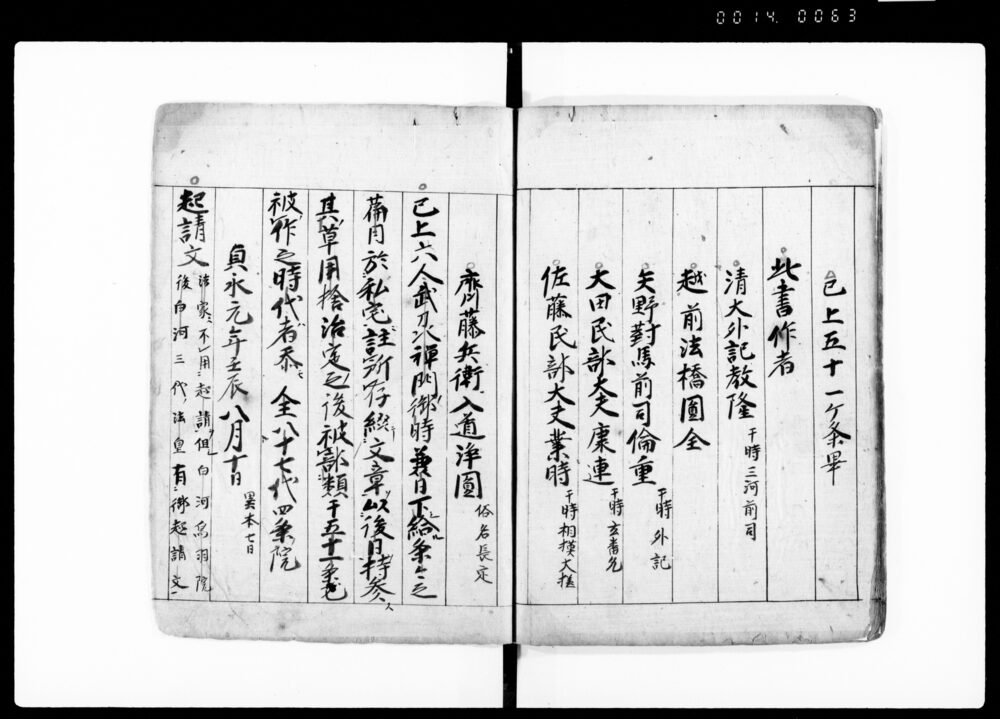 0014 0063
已上五十一ケ条畢
此書作者
清大外記教隆 于時三河前司
越前法橋圓全
矢野對馬前司倫重 于時外記
大田民部大夫康連 于時玄蕃允
佐藤民部大夫業時 于時相摸大掾
齊藤兵衛入道淨圓 俗名長定
已上六人武刕禅門御時兼日下給条々之
篇目於私宅註所存綴文章以後日持参ス
其草用捨治定之後被部類于五十一条ニ
被作之時代者忝 全八十七代四条院
貞永元年壬辰八月十日 異本七日
起請文 法家ニ不用起請但白河鳥羽院
後白河三代法皇有御起請文